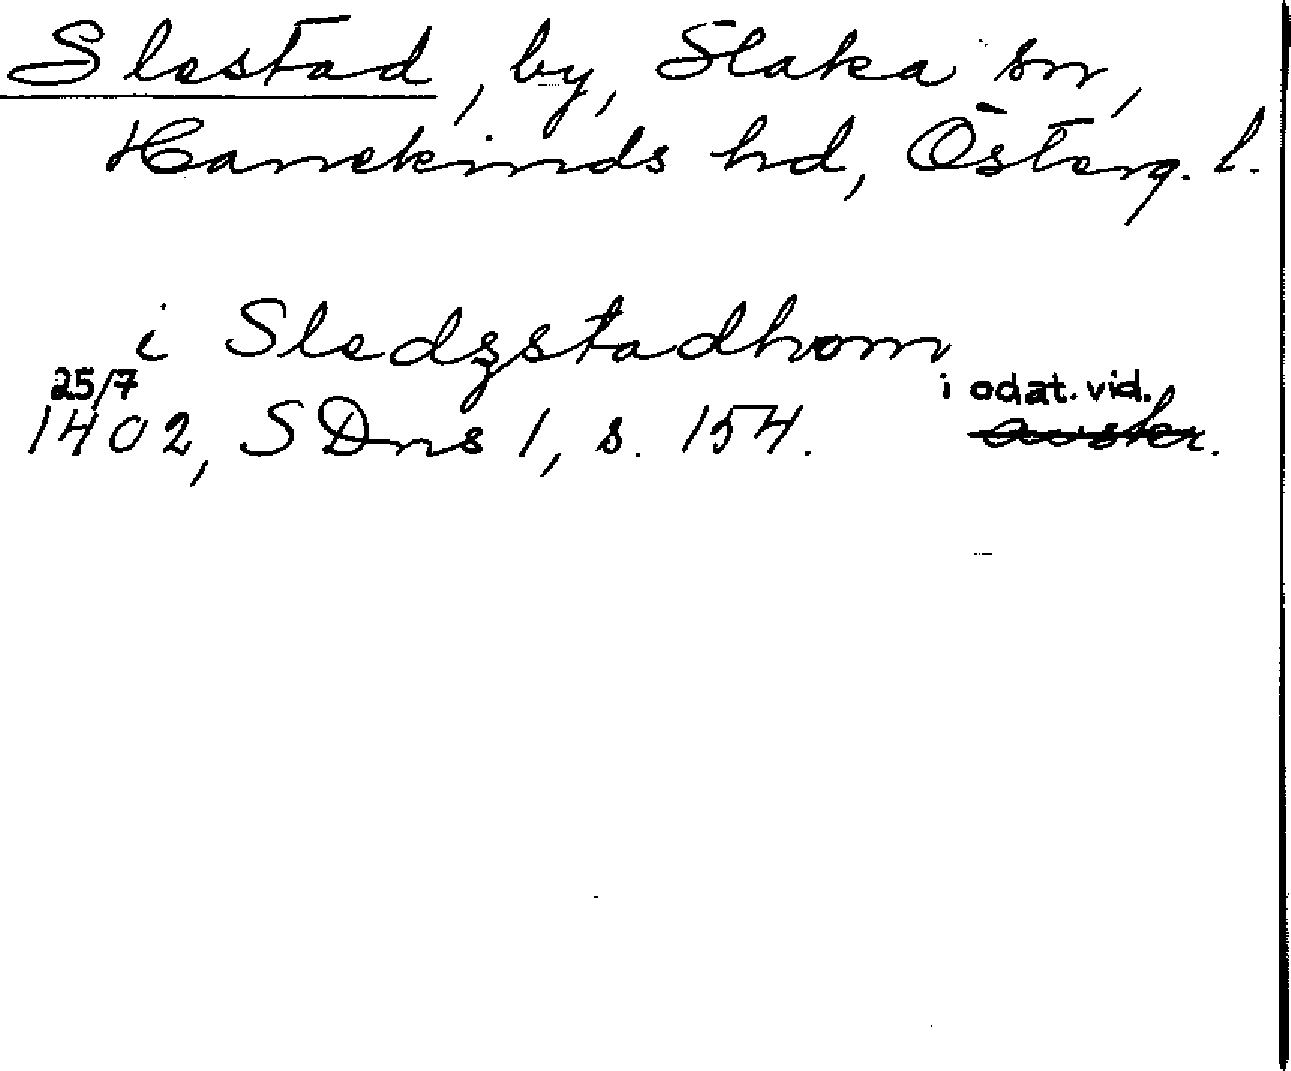 Slestad, by, Slaka sn,
Hanekinds hd, Österg. l.
i Sledzstadhom
25/7 i odat. vid.
1402, SDns 1, s. 154. avskr.